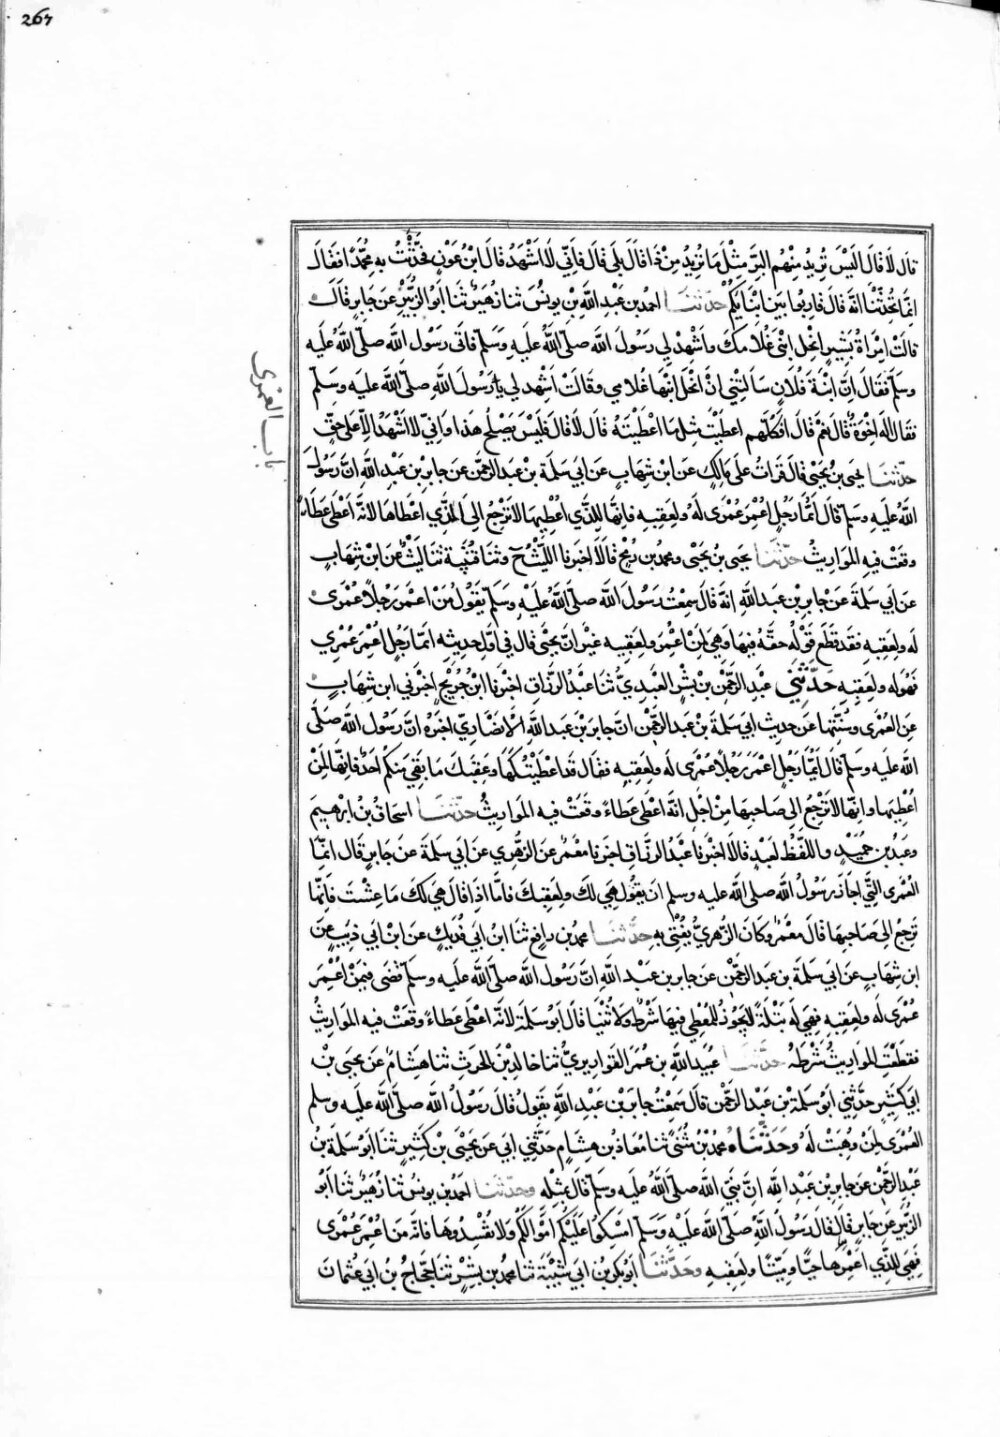 267
قال لا قال اليس تريد منهم البر مثل ما تريد من ذا قال بلى قال فاني لا اشهد قال ابن عون فحدثت به محمدا فقال
انما تحدثنا انه قال قاربوا بين ابنايكم حدثنا احمد بن عبد الله بن يونس ثنا زهير ثنا ابو الزبير عن جابر قال
قالت امراة بشير انحل ابني غلامك واشهد لي رسول الله صلى الله عليه وسلم فاتى رسول الله صلى الله عليه
وسلم فقال ان ابنة فلان سالتني ان انحل ابنها غلامي وقالت اشهد لي يا رسول الله صلى الله عليه وسلم
فقال اله اخوة قال نعم قال افكلهم اعطيت مثل ما اعطيته قال لا قال فليس يصلح هذا واني لا اشهد الا على حق
باب العمرى
حدثنا يحيى بن يحيى قال قرات على مالك عن ابن شهاب عن ابي سلمة بن عبد الرحمن عن جابر بن عبد الله ان رسول
الله عليه وسلم قال ايما رجل اعمر عمرى له ولعقبه فانها للذي اعطيها لا ترجع الى الذي اعطاها لانه اعطى عطاء
وقعت فيه المواريث حدثنا يحيى بن يحيى ومحمد بن رمح قالا اخبرنا الليث ح وثنا قتيبة ثنا ليث عن ابن شهاب
عن ابي سلمة عن جابر بن عبد الله انه قال سمعت رسول الله صلى الله عليه وسلم يقول من اعمر رجلا عمرى
له ولعقبه فقد قطع قوله حقه فيها وهي لمن اعمر ولعقبه غير ان يحيى قال في اول حديثه ايما رجل اعمر عمرى
فهو له ولعقبه حدثني عبد الرحمن بن بشر العبدي ثنا عبد الرزاق اخبرنا ابن جريج اخبرني ابن شهاب
عن العمرى وسنتها عن حديث ابي سلمة بن عبد الرحمن ان جابر بن عبد الله الانصاري اخبره ان رسول الله صلى
الله عليه وسلم قال ايما رجل اعمر رجلا عمرى له ولعقبه فقال قد اعطيتكها وعقبك ما بقي منكم احد فانها لمن
اعطيها وانها لا ترجع الى صاحبها من اجل انه اعطى عطاء وقعت فيه المواريث حدثنا اسحاق بن ابرهيم
وعبد بن حميد واللفظ لعبد قالا اخبرنا عبد الرزاق اخبرنا معمر عن الزهري عن ابي سلمة عن جابر قال انما
العمرى التي اجاز رسول الله صلى الله عليه وسلم ان يقول هي لك ولعقبك فاما اذا قال هي لك ما عشت فانها
ترجع الى صاحبها قال معمر وكان الزهري يفتي به حدثنا محمد بن رافع ثنا ابن ابي فديك عن ابن ابي ذيب عن
ابن شهاب عن ابي سلمة بن عبد الرحمن عن جابر بن عبد الله ان رسول الله صلى الله عليه وسلم قضى فيمن اعمر
عمرى له ولعقبه فهي له بتلة لا يجوز للمعطي فيها شرط ولا ثنيا قال ابو سلمة لانه اعطى عطاء وقعت فيه المواريث
فقطعت المواريث شرطه حدثنا عبيد الله بن عمر القواريري ثنا خالد بن الحرث ثنا هشام عن يحيى بن
ابي كثير حدثني ابو سلمة بن عبد الرحمن قال سمعت جابر بن عبد الله يقول قال رسول الله صلى الله عليه وسلم
العمرى لمن وهبت له وحدثناه محمد بن مثنى ثنا معاذ بن هشام حدثني ابي عن يحيى بن كثير ثنا ابو سلمة بن
عبد الرحمن عن جابر بن عبد الله ان نبي الله صلى الله عليه وسلم قال بمثله وحدثنا احمد بن يونس ثنا زهير ثنا ابو
الزبير عن جابر قال قال رسول الله صلى الله عليه وسلم امسكوا عليكم اموالكم ولا تفسدوها فانه من اعمر عمرى
فهي للذي اعمرها حيا وميتا ولعقبه وحدثنا ابو بكر بن ابي شيبة ثنا محمد بن بشر ثنا حجاج بن ابي عثمان